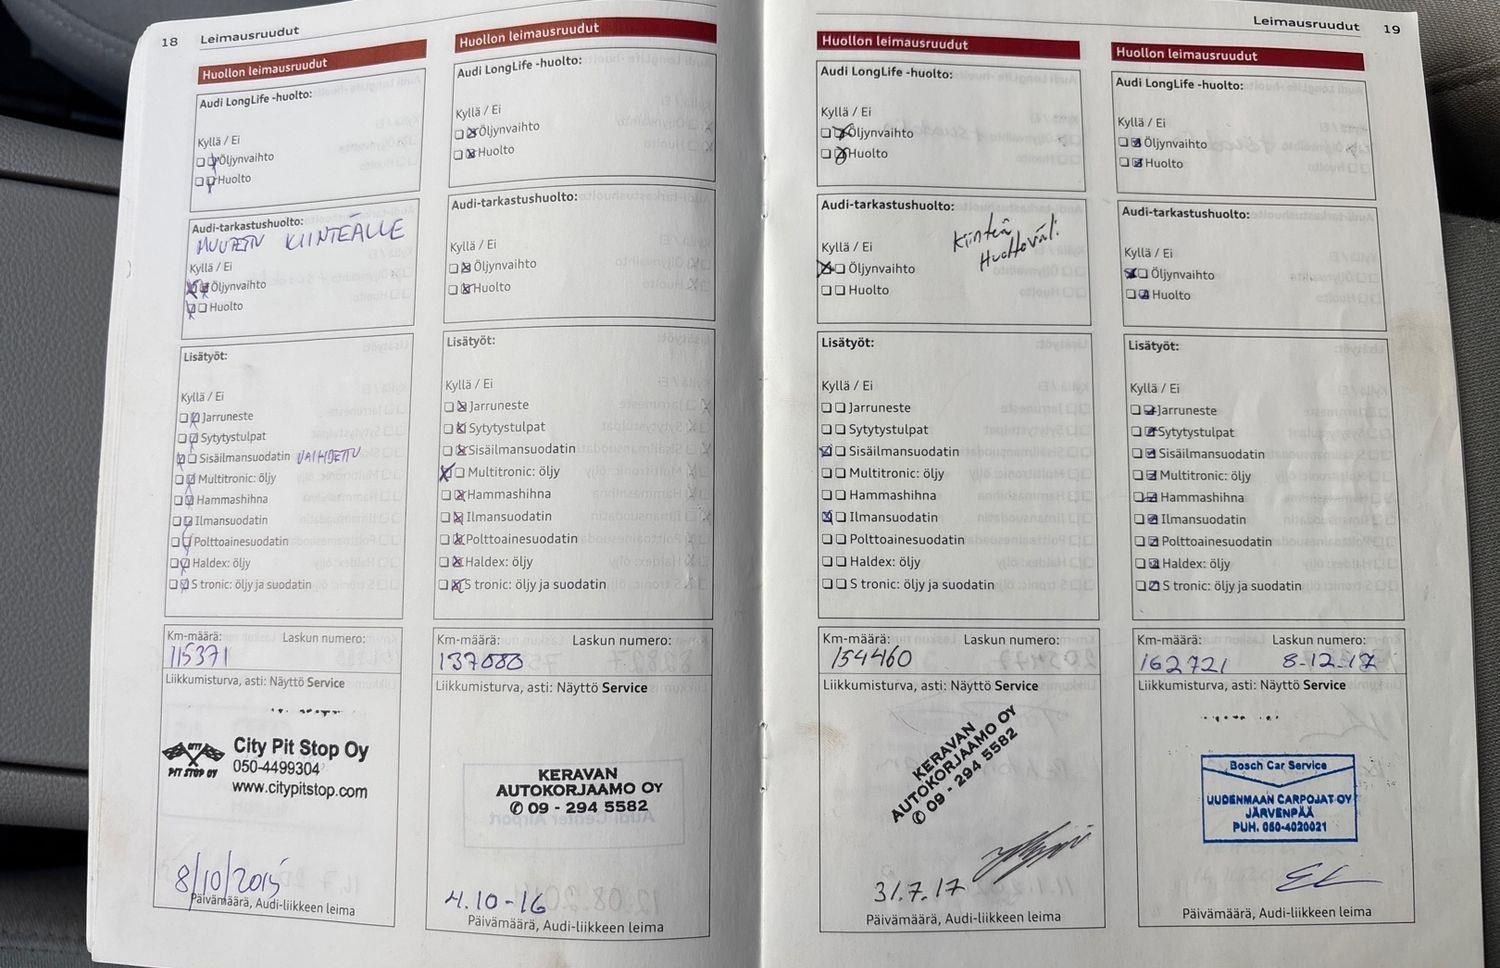 18 Leimausruudut
Huollon leimausruudut
Audi LongLife -huolto:
Kyllä / Ei
Öljynvaihto
Huolto
Audi-tarkastushuolto:
MUUTETTU KIINTEÄLLE
Kyllä / Ei
Öljynvaihto
Huolto
Lisätyöt:
Kyllä / Ei
Jarruneste
Sytytystulpat
Sisäilmansuodatin VAIHDETTU
Multitronic: öljy
Hammashihna
Ilmansuodatin
Polttoainesuodatin
Haldex: öljy
S tronic: öljy ja suodatin
Km-määrä: Laskun numero:
115371
Liikkumisturva, asti: Näyttö Service
CITY
PIT STOP OY
City Pit Stop Oy
050-4499304
www.citypitstop.com
8/10/2015
Päivämäärä, Audi-liikkeen leima
Huollon leimausruudut
Audi LongLife -huolto:
Kyllä / Ei
Öljynvaihto
Huolto
Audi-tarkastushuolto:
Kyllä / Ei
Öljynvaihto
Huolto
Lisätyöt:
Kyllä / Ei
Jarruneste
Sytytystulpat
Sisäilmansuodatin
Multitronic: öljy
Hammashihna
Ilmansuodatin
Polttoainesuodatin
Haldex: öljy
S tronic: öljy ja suodatin
Km-määrä: Laskun numero:
137080
Liikkumisturva, asti: Näyttö Service
KERAVAN
AUTOKORJAAMO OY
✆ 09 - 294 5582
4.10-16
Päivämäärä, Audi-liikkeen leima
Leimausruudut 19
Huollon leimausruudut
Audi LongLife -huolto:
Kyllä / Ei
Öljynvaihto
Huolto
Audi-tarkastushuolto:
Kiinteä
Huoltoväli
Kyllä / Ei
Öljynvaihto
Huolto
Lisätyöt:
Kyllä / Ei
Jarruneste
Sytytystulpat
Sisäilmansuodatin
Multitronic: öljy
Hammashihna
Ilmansuodatin
Polttoainesuodatin
Haldex: öljy
S tronic: öljy ja suodatin
Km-määrä: Laskun numero:
154460
Liikkumisturva, asti: Näyttö Service
KERAVAN
AUTOKORJAAMO OY
✆ 09 - 294 5582
31.7.17
Päivämäärä, Audi-liikkeen leima
Huollon leimausruudut
Audi LongLife -huolto:
Kyllä / Ei
Öljynvaihto
Huolto
Audi-tarkastushuolto:
Kyllä / Ei
Öljynvaihto
Huolto
Lisätyöt:
Kyllä / Ei
Jarruneste
Sytytystulpat
Sisäilmansuodatin
Multitronic: öljy
Hammashihna
Ilmansuodatin
Polttoainesuodatin
Haldex: öljy
S tronic: öljy ja suodatin
Km-määrä: Laskun numero:
162721 8-12-17
Liikkumisturva, asti: Näyttö Service
Bosch Car Service
UUDENMAAN CARPOJAT OY
JÄRVENPÄÄ
PUH. 050-4020021
Päivämäärä, Audi-liikkeen leima